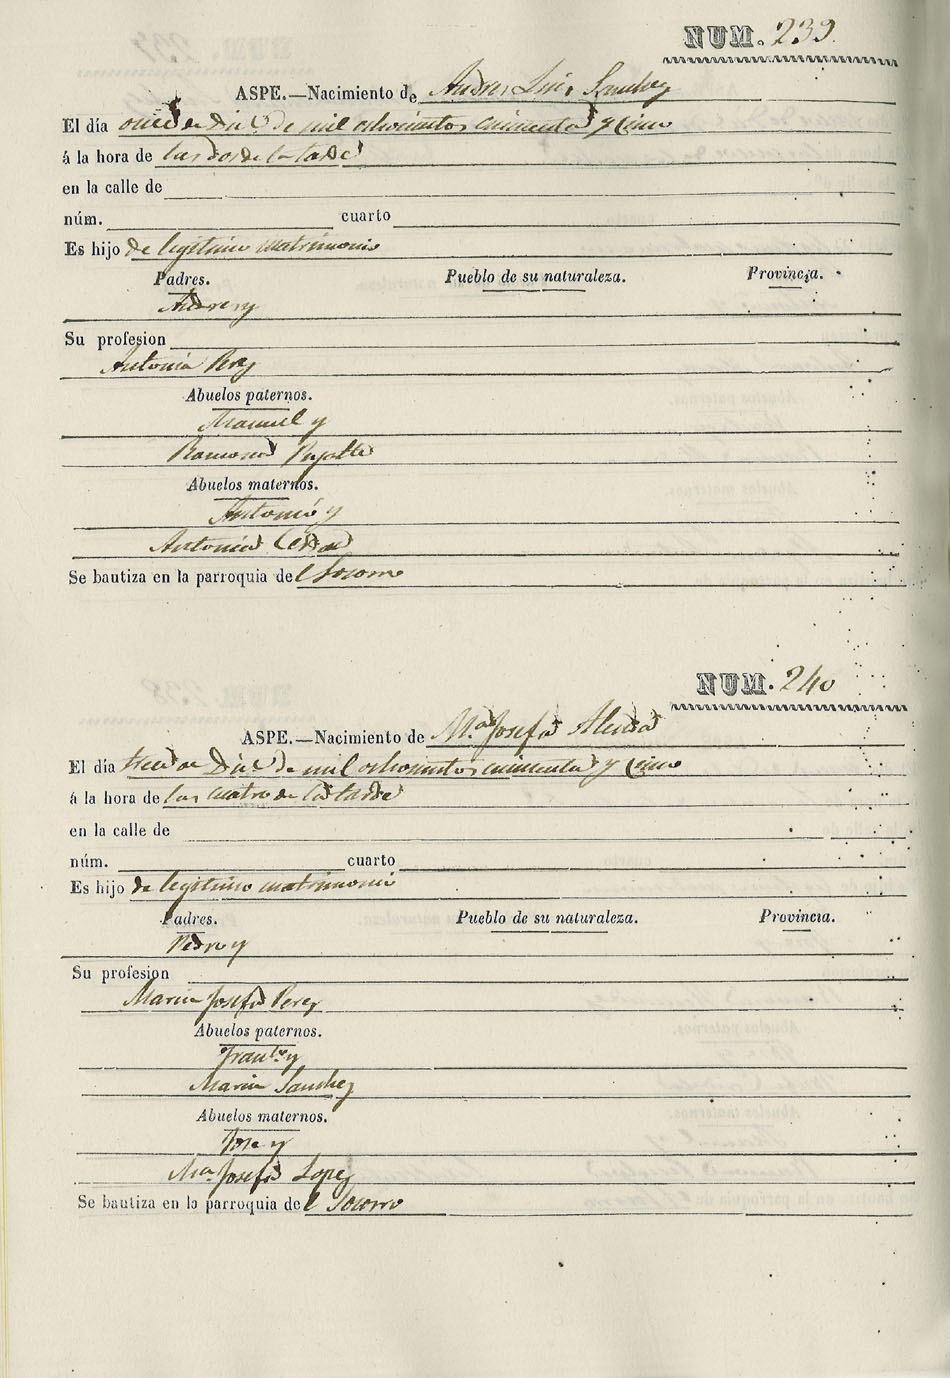 NUM. 239.
ASPE.—Nacimiento de Andres Luis Sanchez
El día once de Dic.e de mil ochocientos cincuenta y cinco
á la hora de las dos de la tarde
en la calle de
núm. cuarto
Es hijo de legitimo matrimonio
Padres. Pueblo de su naturaleza. Provincia.
Andres y
Su profesion
Antonia Perez
Abuelos paternos.
Manuel y
Ramona Pujalte
Abuelos maternos.
Antonio y
Antonia
Se bautiza en la parroquia del Socorro
NUM. 240
ASPE.—Nacimiento de M.a Josefa
El día trece de Dic.e de mil ochocientos cincuenta y cinco
á la hora de las cuatro de la tarde
en la calle de
núm. cuarto
Es hijo de legitimo matrimonio
Padres. Pueblo de su naturaleza. Provincia.
Pedro y
Su profesion
Maria Josefa Perez
Abuelos paternos.
Fran.co y
Maria Sanchez
Abuelos maternos.
Jose y
M.a Josefa Lopez
Se bautiza en la parroquia del Socorro